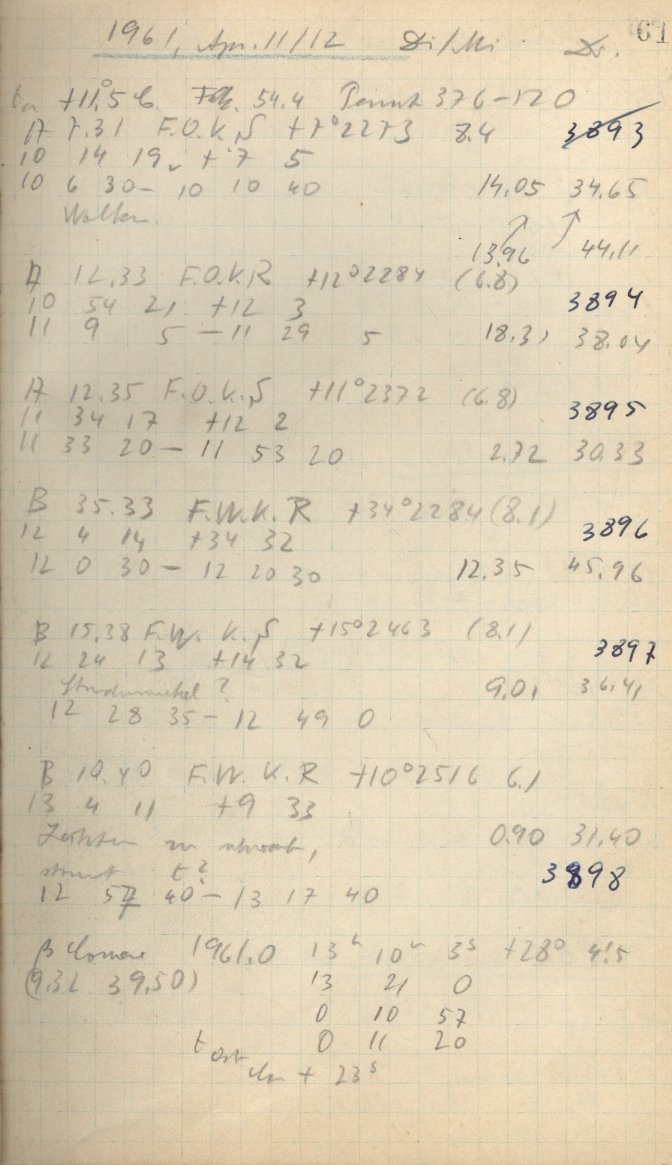 61
1961, Apr. 11/12 Di/Mi Dr.
+11,5 54.4 376-520
A 7.31 F.O.K.S +7°2273 8.4 3893
10 14 19 +7 5
10 6 30 - 10 10 40 14.05 34.65
Wolken.
13.96 44.11
A 12.33 F.O.K.R +12°2284 (6.8)
3894
10 54 21 +12 3
11 9 5 - 11 29 5 18.31 38.04
A 12.35 F.O.K.S +11°2372 (6.8)
3895
11 34 17 +12 2
11 33 20 - 11 53 20 2.72 30.33
B 35.33 F.W.K.R +34°2284 (8.1)
3896
12 4 14 +34 32
12 0 30 - 12 20 30 12.35 45.96
B 15.38 F.W.K.S +15°2463 (8.1)
3897
12 24 13 +14 32
Stundenwinkel? 9.01 36.41
12 28 35 - 12 49 0
B 10.40 F.W.K.R +10°2516 6.1
13 4 11 +9 33
zu schwach, 0.90 31.40
stimmt t? 3898
12 57 40 - 13 17 40
β Comae 1961.0 13h 10m 3s +28° 4!5
(9.32 39.50) 13 21 0
0 10 57
t Ost 0 11 20
+ 23s